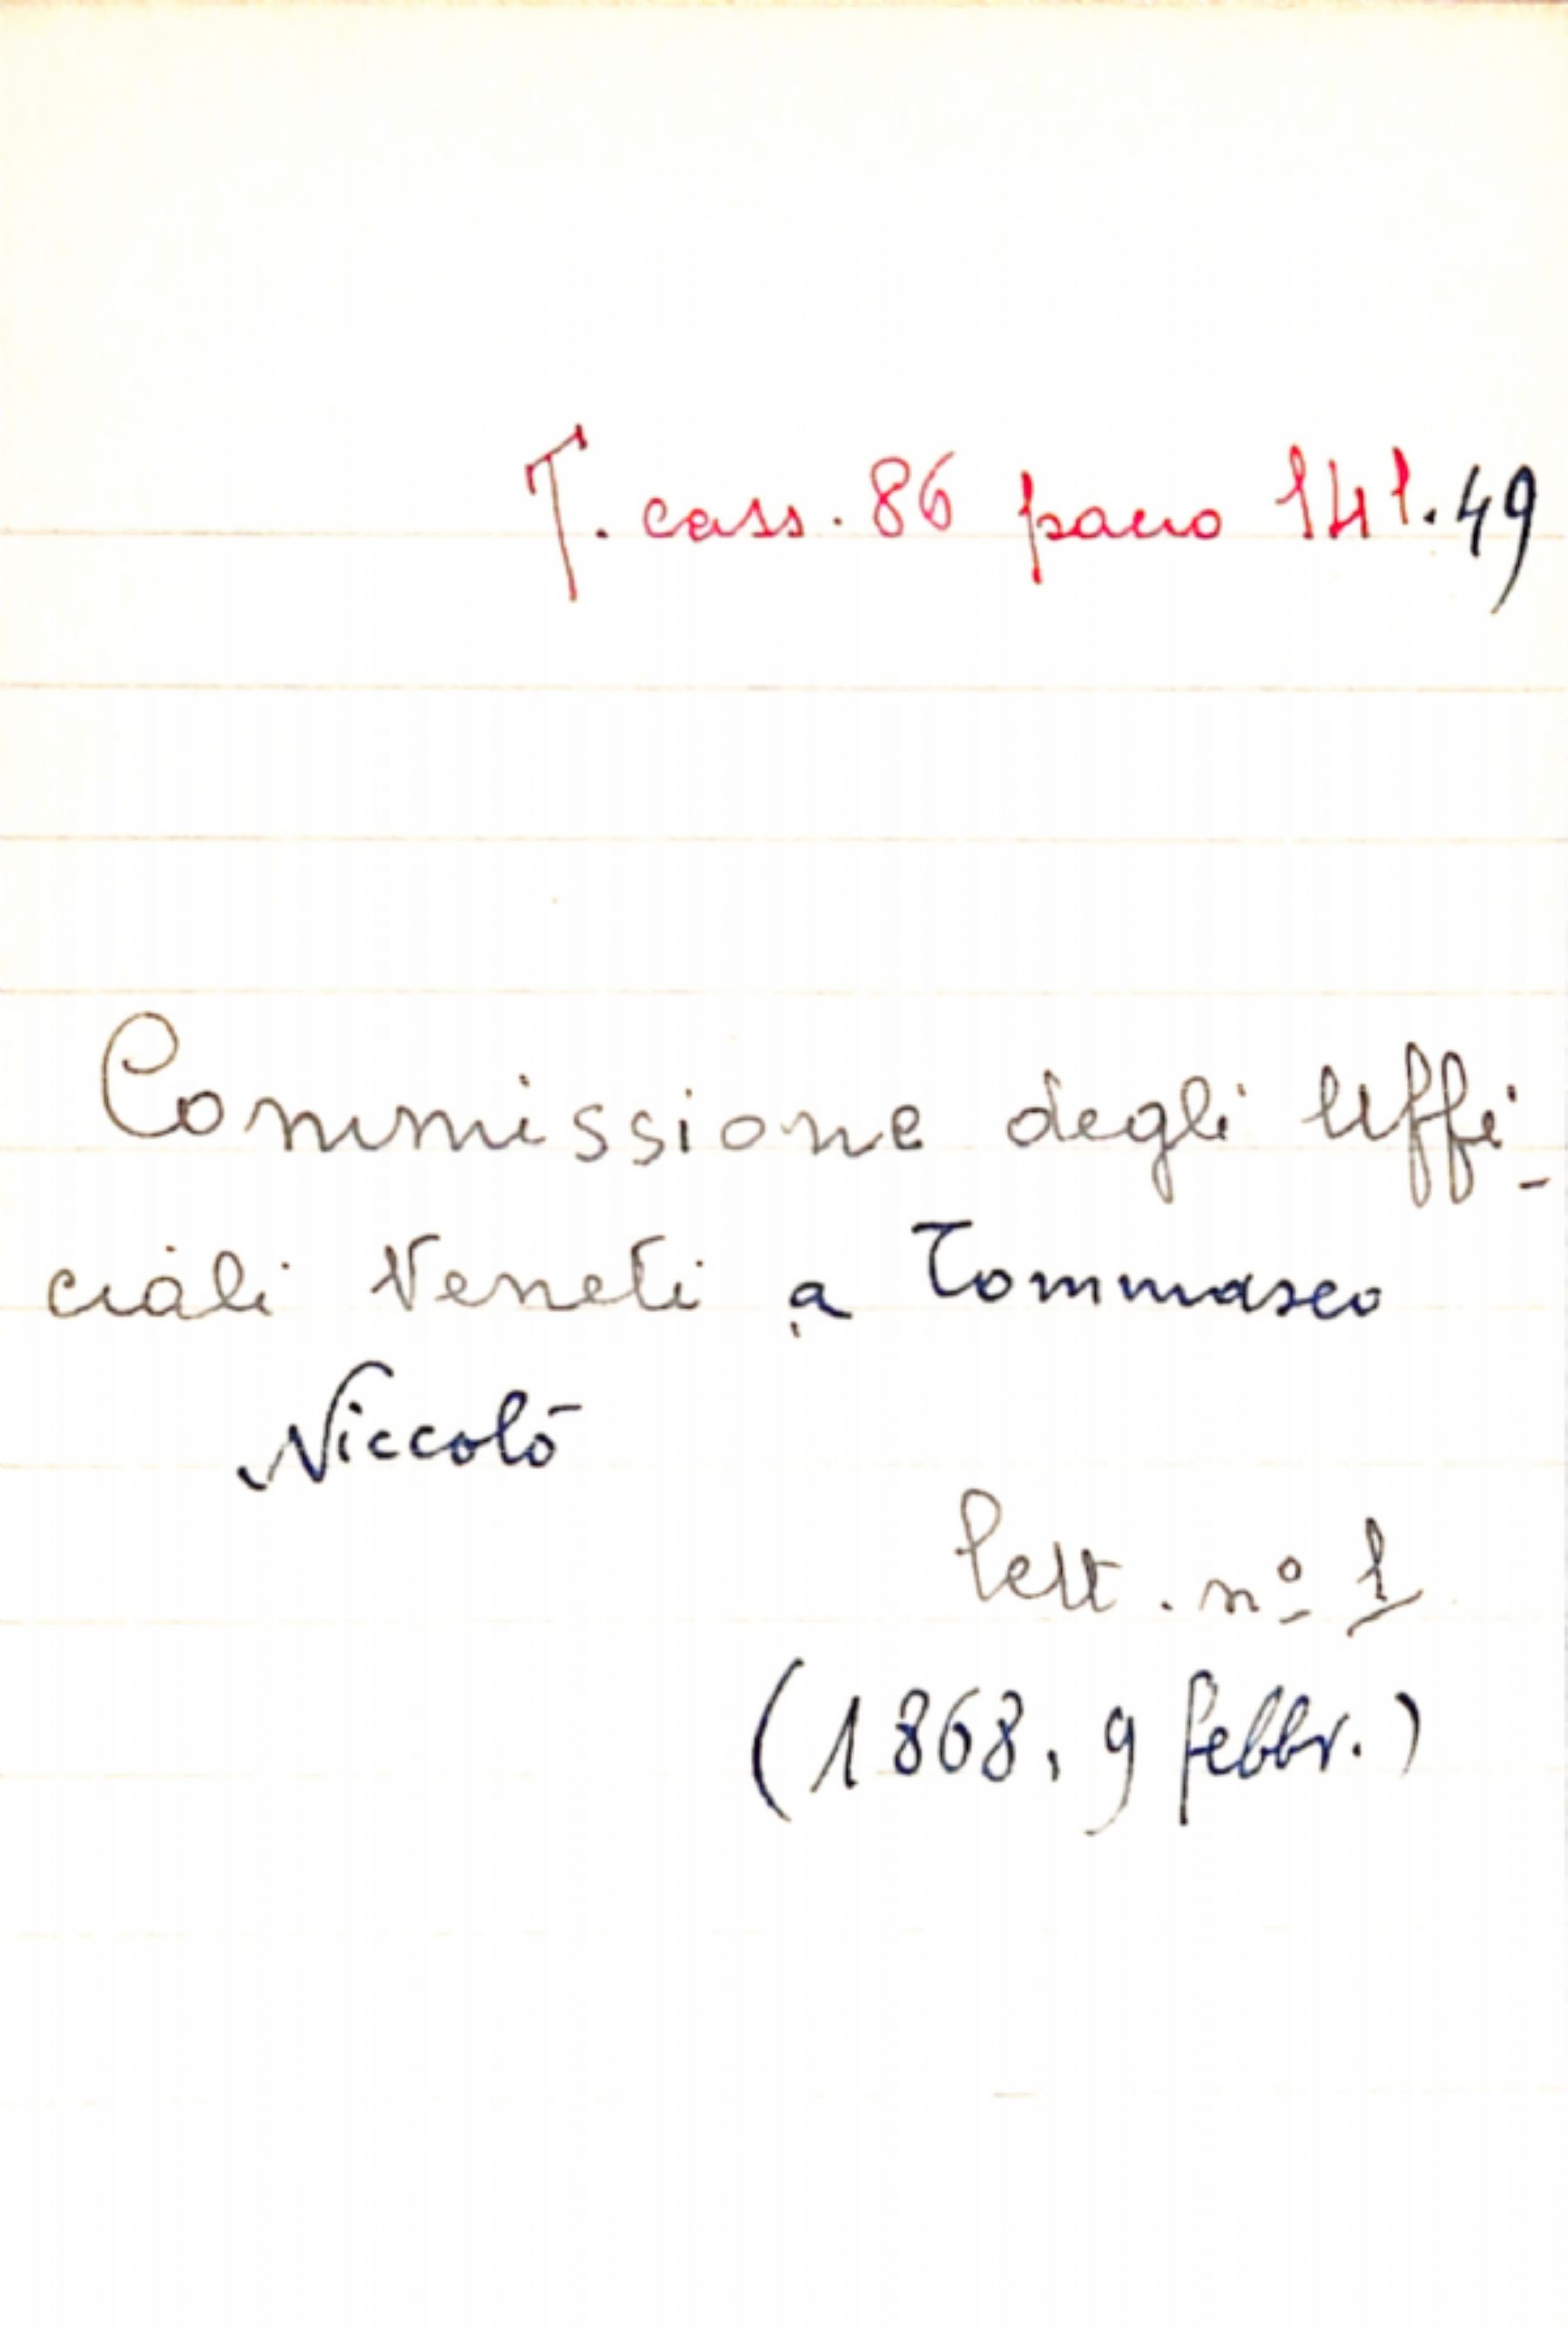 T. cass. 86 pacco 141.49
Commissione degli Uffi-
ciali Veneti a Tommaseo
Niccolò
lett. nº 1
(1868, 9 febbr.)